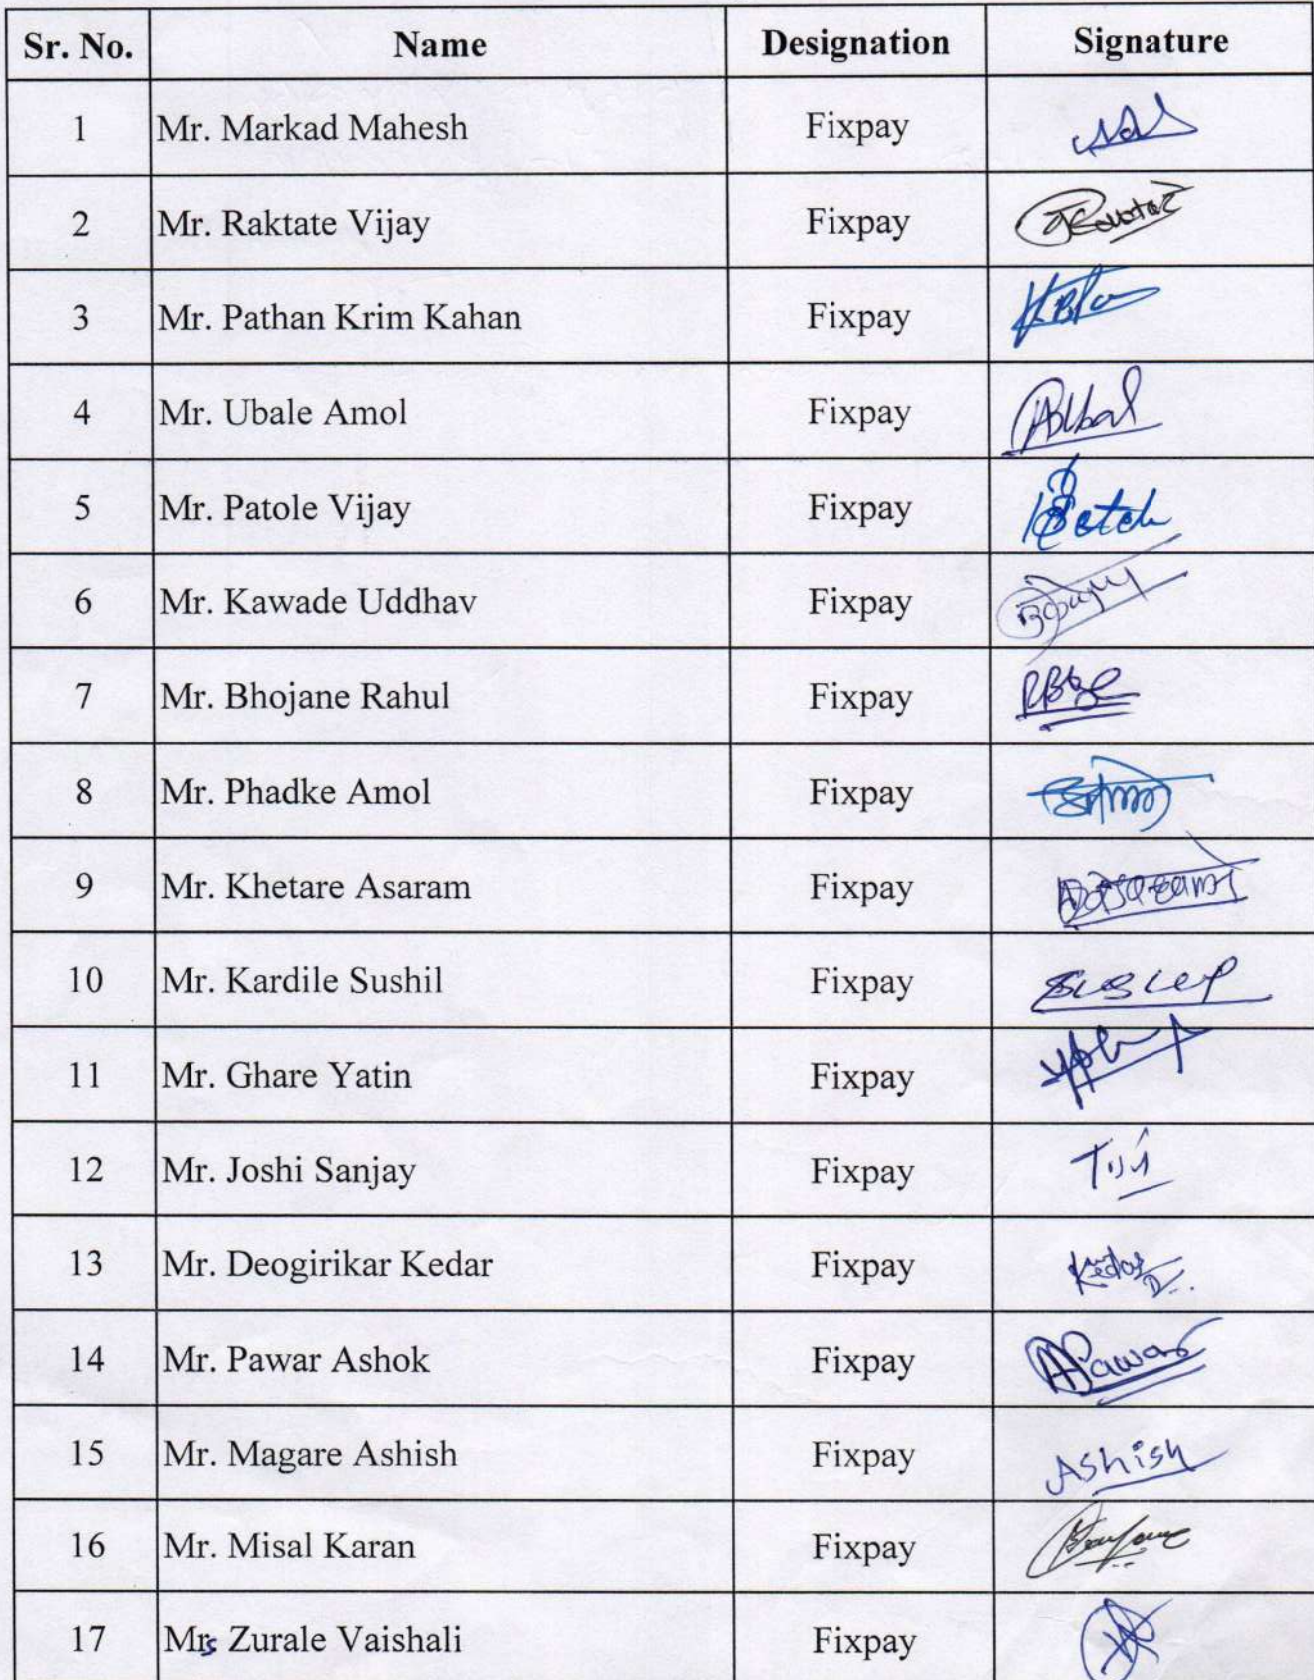 Sr. No. Name Designation Signature
1 Mr. Markad Mahesh Fixpay
2 Mr. Raktate Vijay Fixpay
3 Mr. Pathan Krim Kahan Fixpay
4 Mr. Ubale Amol Fixpay
5 Mr. Patole Vijay Fixpay
6 Mr. Kawade Uddhav Fixpay
7 Mr. Bhojane Rahul Fixpay
8 Mr. Phadke Amol Fixpay
9 Mr. Khetare Asaram Fixpay
10 Mr. Kardile Sushil Fixpay
11 Mr. Ghare Yatin Fixpay
12 Mr. Joshi Sanjay Fixpay
13 Mr. Deogirikar Kedar Fixpay Kedar D
14 Mr. Pawar Ashok Fixpay APawar
15 Mr. Magare Ashish Fixpay Ashish
16 Mr. Misal Karan Fixpay
17 Mrs Zurale Vaishali Fixpay